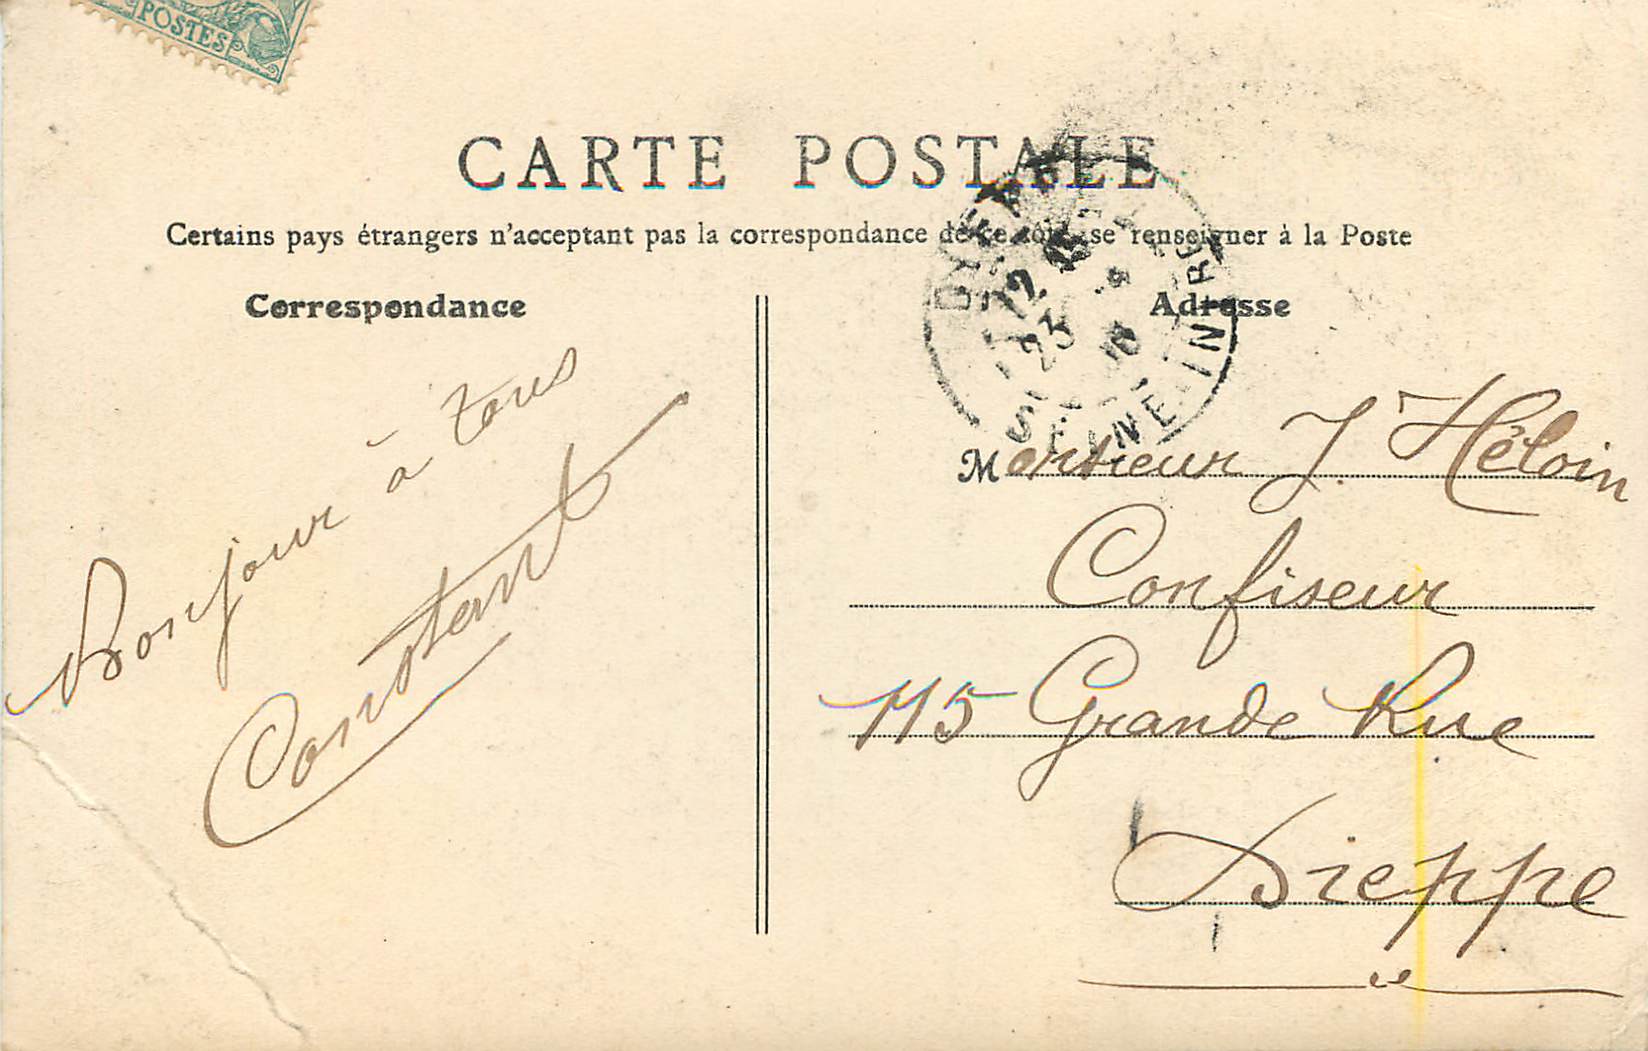 POSTES
CARTE POSTALE
Certains pays étrangers n'acceptant pas la correspondance de ce côté, se renseigner à la Poste
Correspondance
Adresse
12
23
SEINE-INFRE
Bonjour à tous
Constant
Monsieur J Héloin
Confiseur
115 Grande Rue
Dieppe